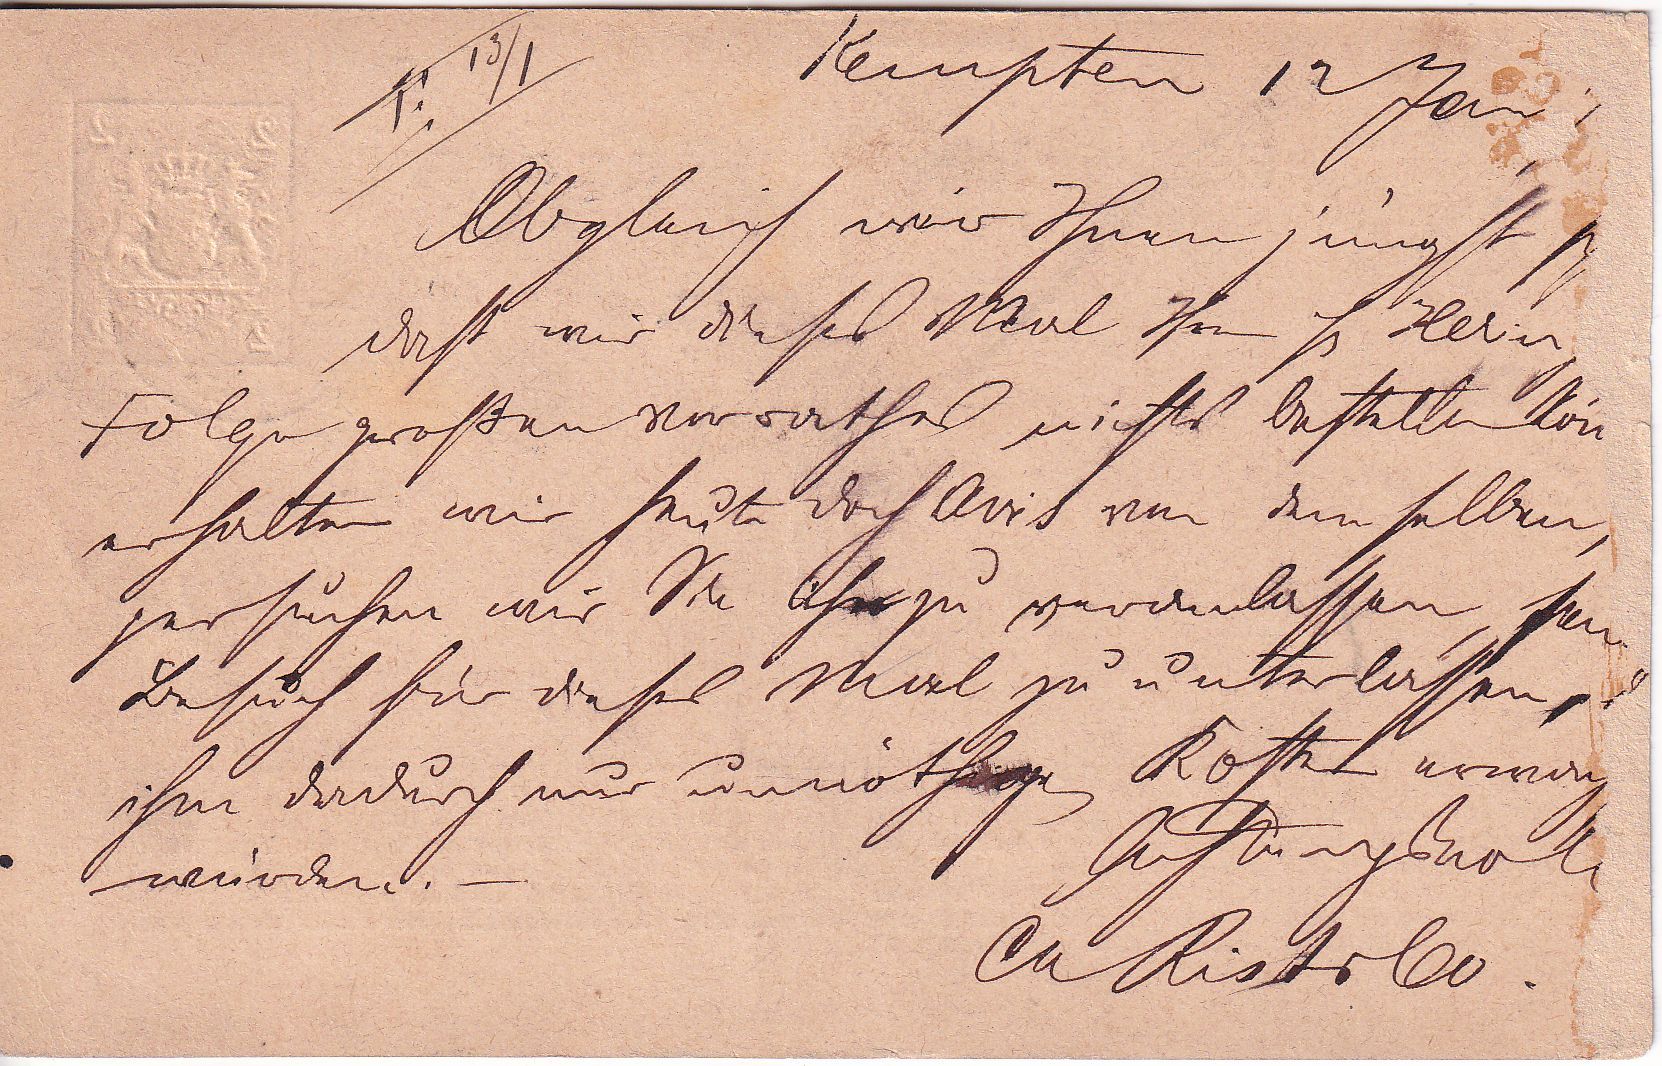 13/1
Kempten 12 Jan
Obgleich wir Ihnen jüngst
daß wir dieses Mal
Folge großen Vorrathes nichts bestellen kön
erhalten wir heute doch Avis von demselben,
ersuchen wir Sie ihn zu veranlassen, sein
Besuch für dieses Mal zu unterlassen,
ihm dadurch nur unnöthige Kosten erwach
würden. —
Achtungsvoll
Rist & Co.